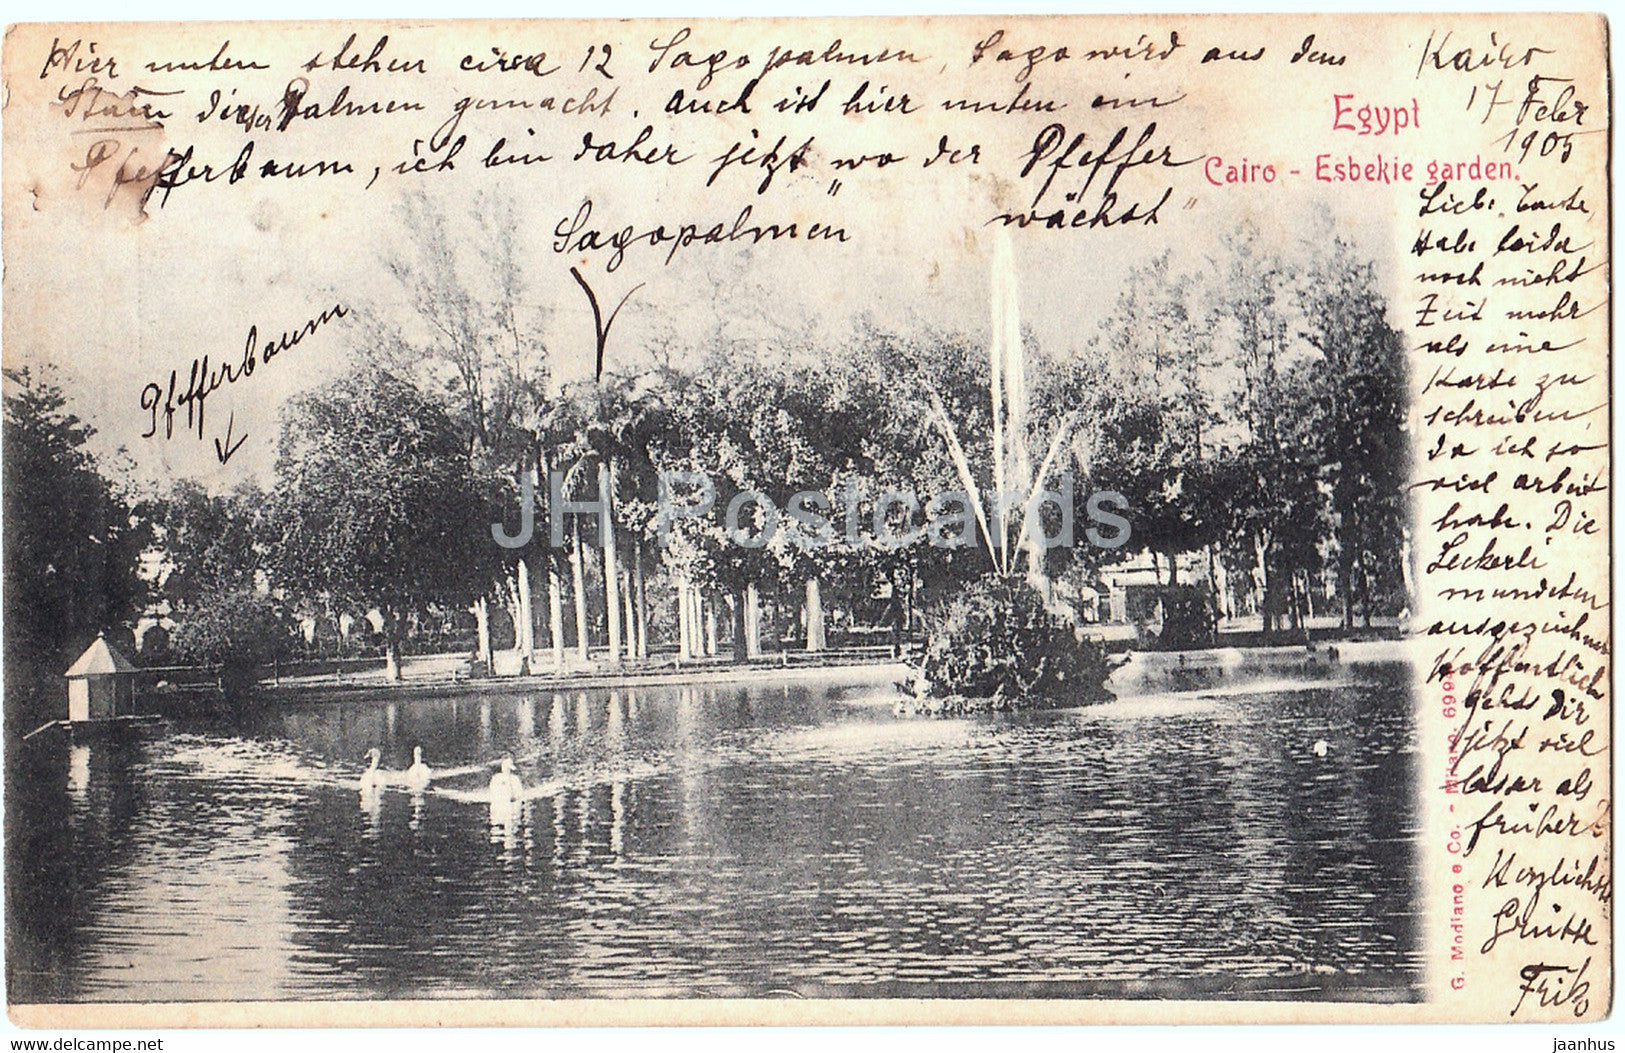 Hier unten stehen circa 12 Sagopalmen, Sago wird aus dem
Stam dieser Palmen gemacht. Auch ist hier unten ein
Pfefferbaum, ich bin daher jetzt "wo der Pfeffer
wächst"
Sagopalmen
Pfefferbaum
Egypt
Cairo - Esbekie garden.
Kairo
17 Febr
1905
Liebe Tante,
Habe leider
noch nicht
Zeit mehr
als eine
Karte zu
schreiben,
da ich so
viel arbeit
habe. Die
Leckerli
mundeten
ausgezeichnet
Hoffentlich
gehts Dir
jetzt viel
besser als
früher
Herzlichste
Grüsse
Fritz
G. Modiano e Co. - Milano
JH Postcards
www.delcampe.net
jaanhus